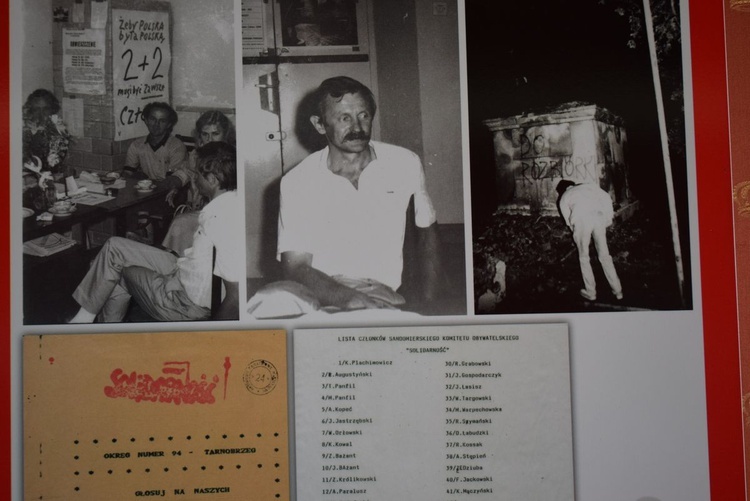 Żeby POLSKA
była POLSKĄ
2+2
musi być Zawsze
OGŁOSZENIE
DO
ROZBIÓRKI
Solidarność
24
OKRĘG NUMER 94 - TARNOBRZEG
GŁOSUJ NA NASZYCH
LISTA CZŁONKÓW SANDOMIERSKIEGO KOMITETU OBYWATELSKIEGO
"SOLIDARNOŚĆ"
1/K.Plachimowicz
2/W.Augustyński
3/T.Panfil
4/M.Panfil
5/A.Kopeć
6/J.Jastrzębski
7/W.Orłowski
8/K.Kowal
9/Z.Bażant
10/J.Bażant
11/Z.Królikowski
12/A.Paralusz
30/R.Grabowski
31/J.Gospodarczyk
32/J.Lasisz
33/W.Targowski
34/M.Warpachowska
35/R.Szymański
36/D.Łabudzki
37/R.Kossak
38/A.Stępień
39/Z.Dziuba
40/F.Jackowski
41/K.Męczyński